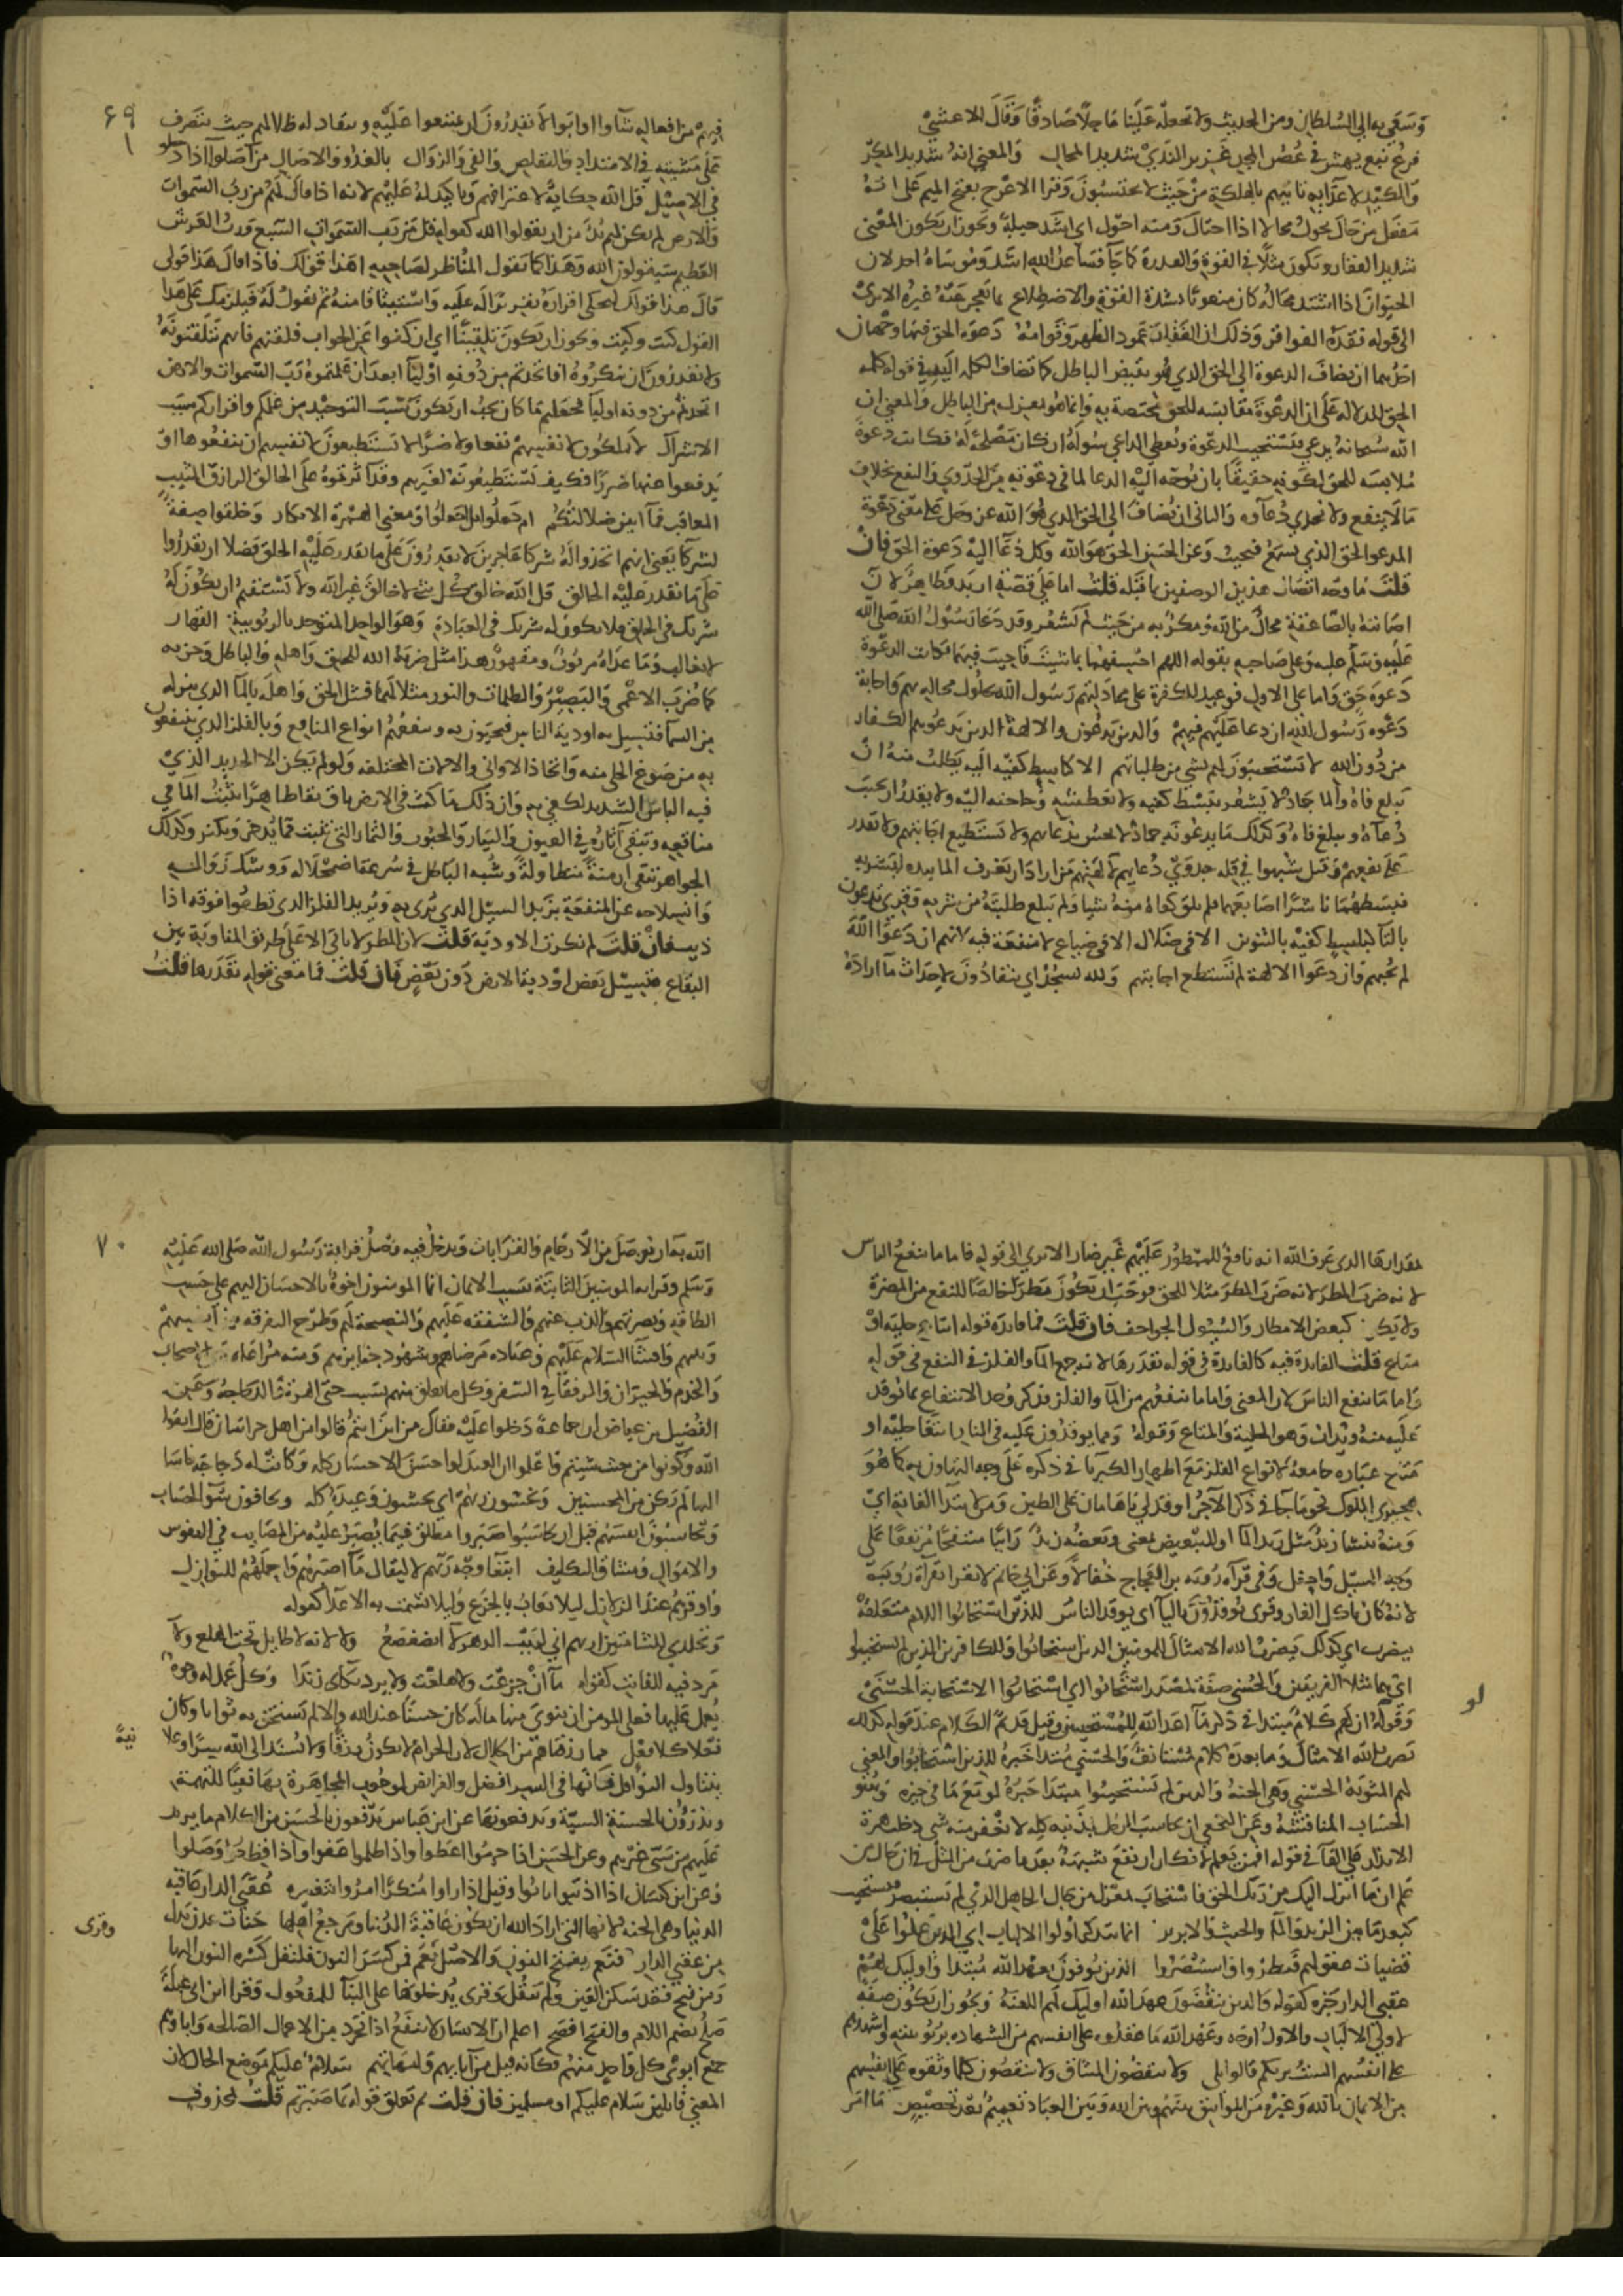 وسعى به الى السلطان ومن الحديث ولا تجعله علينا ماحلا صادقا وقال الاعشى
فرع نبع يهش في غصن المجد غزير الندى شديد المحال والمعنى انه شديد المكر
والكيد لاعدائه ياتيهم بالهلكة من حيث لا يحتسبون وقرا الاعرج بفتح الميم على انه
مفعل من حال يحول محالا اذا احتال ومنه احول اي اشد حيلة ويجوز ان يكون المعنى
شديد الفقار ويكون مثلا في القوة والقدرة كما جا فساعد الله اشد وموساه احد لان
الحيوان اذا اشتد محاله كان منعوتا بشدة القوة والاضطلاع بما يعجز عنه غيره الا ترى
الى قوله فقدته الفواقر وذلك ان الفقار عمود الظهر وقوامه دعوة الحق فيها وجهان
احدهما ان تضاف الدعوة الى الحق الذي هو نقيض الباطل كما تضاف الكلمة اليه في قوله كلمة
الحق للدلالة على ان الدعوة ملابسة للحق مختصة به وانها بمعزل من الباطل والمعنى ان
الله سبحانه يدعى فيستجيب الدعوة ويعطى الداعي سوله ان كان مصلحة له فكانت دعوة
ملابسة للحق لكونه حقيقا بان يوجه اليه الدعا لما في دعوته من الجدوى والنفع بخلاف
ما لا ينفع ولا يجدي دعاوه والثاني ان تضاف الى الحق الذي هو الله عز وجل على معنى دعوة
المدعو الحق الذي يسمع فيجيب وعن الحسن الحق هو الله وكل دعا اليه دعوة الحق فان
قلت ما وجه اتصال هذين الوصفين بما قبله قلت اما على قصة اربد فظاهر لان
اصابته بالصاعقة محال من الله ومكر به من حيث لم يشعر وقد دعا رسول الله صلى الله
عليه وسلم عليه وعلى صاحبه بقوله اللهم اخسفهما بما شيت فاجيب فيهما فكانت الدعوة
دعوة حق واما على الاول فوعيد للكفرة على مجادلتهم رسول الله بحلول محاله بهم واجابة
دعوة رسول الله ان دعا عليهم فيهم والذين يدعون والالهة الذين يدعوهم الكفار
من دون الله لا يستجيبون لهم بشي من طلباتهم الا كباسط كفيه اليه يطلب منه ان
يبلغ فاه والما جماد لا يشعر ببسط كفيه ولا بعطشه وحاجته اليه ولا يقدر ان يجيب
دعاه ويبلغ فاه وكذلك ما يدعونه جماد لا يحس بدعايهم ولا يستطيع اجابتهم ولا يقدر
على نفعهم وقيل شبهوا في قلة جدوى دعايهم لالهتهم بمن اراد ان يغرف الما بيده ليشربه
فبسطهما ناشرا اصابعهما فلم تلق كفاه منه شيا ولم يبلغ طلبته من شربه وقري تدعون
بالتا كباسط كفيه بالتنوين الا في ضلال الا في ضياع لا منفعة فيه لانهم ان دعوا الله
لم يجبهم وان دعوا الالهة لم تستطع اجابتهم ولله يسجد اي ينقادون لاحداث ما اراده
٦٩
١
فيهم من افعاله شاوا او ابوا لا يقدرون ان يمتنعوا عليه وتنقاد له ظلالهم حيث تتصرف
على مشيته في الامتداد والتقلص والفي والزوال بالغدو والاصال من اصلوا اذا دخلوا
في الاصيل قل الله حكاية لاعترافهم وتاكيد له عليهم لانه اذا قال لهم من رب السموات
والارض لم يكن لهم بد من ان يقولوا الله كقوله قل من رب السموات السبع ورب العرش
العظيم سيقولون الله وهذا كما يقول المناظر لصاحبه اهذا قولك فاذا قال هذا قولي
قال هذا قولك فيحكي اقراره تقريرا له عليه واستيثاقا منه ثم يقول له فيلزمك على هذا
القول كيت وكيت ويجوز ان يكون تلقينا اي ان كفوا عن الجواب فلقنهم فانهم يتلقنونه
ولا يقدرون ان ينكروه افاتخذتم من دونه اوليا ابعد ان علمتموه رب السموات والارض
اتخذتم من دونه اوليا فجعلتم ما كان يجب ان يكون سبب التوحيد من علمكم واقراركم سبب
الاشراك لا يملكون لانفسهم نفعا ولا ضرا لا يستطيعون لانفسهم ان ينفعوها او
يدفعوا عنها ضررا فكيف يستطيعونه لغيرهم وقد اثرتموه على الخالق الرازق المثيب
المعاقب فما ابين ضلالتكم ام جعلوا بل اجعلوا ومعنى الهمزة الانكار وخلقوا صفة
لشركا يعنى انهم اتخذوا له شركا عاجزين لا يقدرون على ما يقدر عليه الخلق فضلا ان يقدروا
على ما يقدر عليه الخالق قل الله خالق كل شي لا خالق غير الله ولا يستقيم ان يكون له
شريك في الخلق فلا يكون له شريك في العبادة وهو الواحد المتوحد بالربوبية القهار
لا يغالب وما عداه مربوب ومقهور هذا مثل ضربه الله للحق واهله والباطل وحزبه
كما ضرب الاعمى والبصير والظلمات والنور مثلا لهما فمثل الحق واهله بالما الذي ينزله
من السما فتسيل به اودية الناس فيحيون به وينفعهم انواع المنافع وبالفلز الذي ينتفعون
به من صوغ الحلي منه واتخاذ الاواني والالات المختلفة ولو لم يكن الا الحديد الذي
فيه الباس الشديد لكفى به وان ذلك ماكث في الارض باق بقا ظاهرا يثبت الما في
منافعه وتبقى اثاره في العيون والبيار والحبوب والثمار التي تنبت مما يدخر ويكنز وكذلك
الجواهر تبقى ازمنة متطاولة وشبه الباطل في سرعة اضمحلاله ووشك زواله
وانسلاخه عن المنفعة بزبد السيل الذي يرمى به وبزبد الفلز الذي يطفوا فوقه اذا
ذيب فان قلت لم نكرت الاودية قلت لان المطر لا ياتي الا على طريق المناوبة بين
البقاع فيسيل بعض اودية الارض دون بعض فان قلت فما معنى قوله بقدرها قلت
بمقدارها الذي عرف الله انه نافع للممطور عليهم غير ضار الا ترى الى قوله فاما ما ينفع الناس
لانه ضرب المطر لانه ضرب المطر مثلا للحق فوجب ان يكون مطرا خالصا للنفع من المضرة
ولا يكون كبعض الامطار والسيول الجواحف فان قلت فما فايدة قوله ابتغا حلية او
متاع قلت الفايدة فيه كالفايدة في قوله بقدرها لانه جمع الما والفلز في النفع في قوله
واما ما ينفع الناس لان المعنى واما ما ينفعهم من الما والفلز فذكر وجه الانتفاع بما يوقد
عليه منه ويذاب وهو الحلية والمتاع وقوله ومما يوقدون عليه في النار ابتغا حلية او
متاع عبارة جامعة لانواع الفلز مع اظهار الكبريا في ذكره على وجه التهاون به كما هو
هجيرى الملوك نحو ما جا في ذكر الاجر اوقد لي يا هامان على الطين ومن لابتدا الغاية اي
ومنه ينشا زبد مثل زبد الما او للتبعيض بمعنى وبعضه زبد رابيا منتفخا مرتفعا على
وجه السيل واجفل وفي قراة روبة بن العجاج جفالا وعن ابي حاتم لا يقرا بقراة روبة
لانه كان ياكل الفار وقري يوقدون باليا اي يوقد الناس للذين استجابوا اللام متعلقة
بيضرب اي كذلك يضرب الله الامثال للمومنين الذين استجابوا وللكافرين الذين لم يستجيبوا
اي هما مثلا الفريقين والحسنى صفة لمصدر استجابوا اي استجابوا الاستجابة الحسنى
وقوله لو ان لهم كلام مبتدا في ذكر ما اعد الله لغير المستجيبين وقيل قد تم الكلام عند قوله كذلك
يضرب الله الامثال وما بعده كلام مستانف والحسنى مبتدا خبره للذين استجابوا والمعنى
لهم المثوبة الحسنى وهي الجنة والذين لم يستجيبوا مبتدا خبره لو مع ما في حيزه وسو
الحساب المناقشة وعن النخعي ان يحاسب الرجل بذنبه كله لا يغفر منه شي دخلت همزة
الانكار على الفا في قوله افمن يعلم لانكار ان تقع شبهة بعد ما ضرب من المثل في ان حال من
علم ان ما انزل اليك من ربك الحق فاستجاب بمعزل من حال الجاهل الذي لم يستبصر فيستجيب
كبعد ما بين الزبد والما والخبث والابريز انما يتذكر اولوا الالباب اي الذين عملوا على
قضيات عقولهم فنظروا واستبصروا الذين يوفون بعهد الله مبتدا واوليك لهم
عقبى الدار خبره كقوله والذين ينقضون عهد الله اوليك لهم اللعنة ويجوز ان يكون صفة
لاولي الالباب والاول اوجه وعهد الله ما عقدوه على انفسهم من الشهادة بربوبيته واشهدهم
على انفسهم الست بربكم قالوا بلى ولا ينقضون الميثاق ولا ينقضون كلما وثقوه على انفسهم
من الايمان بالله وغيره من المواثيق بينهم وبين الله وبين العباد تعميم بعد تخصيص ما امر
لو
٧٠
الله به ان يوصل من الارحام والقرابات ويدخل فيه وصل قرابة رسول الله صلى الله عليه
وسلم وقرابة المومنين الثابتة بسبب الايمان انما المومنون اخوة بالاحسان اليهم على حسب
الطاقة ونصرتهم والذب عنهم والشفقة عليهم والنصيحة لهم وطرح التفرقة بين انفسهم
وبينهم وافشا السلام عليهم وعيادة مرضاهم وشهود جنايزهم ومنه مراعاة حق الاصحاب
والخدم والجيران والرفقا في السفر وكل ما تعلق منهم بسبب حتى الهرة والدجاجة وعن
الفضيل بن عياض ان جماعة دخلوا عليه فقال من اين انتم قالوا من اهل خراسان قال اتقوا
الله وكونوا من حيث شيتم واعلموا ان العبد لو احسن الاحسان كله وكانت له دجاجة فاسا
اليها لم يكن من المحسنين ويخشون ربهم اي يخشون وعيده كله ويخافون سو الحساب
ويحاسبون انفسهم قبل ان يحاسبوا صبروا مطلق فيما يصبر عليه من المصايب في النفوس
والاموال ومشاق التكليف ابتغا وجه ربهم لا ليقال ما اصبره واحمله للنوازل
واوقره عند الزلازل ليلا يعاب بالجزع وليلا يشمت به الاعدا كقوله
وتجلدي للشامتين اريهم اني لريب الدهر لا اتضعضع ولا لانه لا طايل تحت الهلع ولا
مرد فيه للفايت كقوله ما ان جزعت ولا هلعت ولا يرد بكاي زندا وكل عمل له وجوه
يعمل عليها فعلى المومن ان ينوي منها ما له كان حسنا عند الله والا لم يستحق به ثوابا وكان
فعلا كلا فعل مما رزقناهم من الحلال لان الحرام لا يكون رزقا ولا يسند الى الله سرا وعلانية
يتناول النوافل لانها في السر افضل والفرايض لوجوب المجاهرة بها نفيا للتهمة
ويدرون بالحسنة السيئة ويدفعونها عن ابن عباس يدفعون بالحسن من الكلام ما يرد
عليهم من سيئ غيرهم وعن الحسن اذا حرموا اعطوا واذا ظلموا عفوا واذا قطعوا وصلوا
وعن ابن كيسان اذا اذنبوا تابوا وقيل اذا راوا منكرا امروا بتغييره عقبى الدار عاقبة
الدنيا وهي الجنة لانها التي اراد الله ان يكون عاقبة الدنيا ومرجع اهلها جنات عدن بدل
من عقبى الدار فنعم بفتح النون والاصل نعم فمن كسر النون فلنقل كسرة النون اليها
ومن فتح فقد سكن العين ولم ينقل وقري يدخلونها على البنا للمفعول وقرا ابن ابي عبلة
صلح بضم اللام والفتح افصح اعلم ان الانساب لا تنفع اذا تجردت من الاعمال الصالحة واباوهم
جمع ابوي كل واحد منهم فكانه قيل من ابايهم وامهاتهم سلام عليكم في موضع الحال لان
المعنى قايلين سلام عليكم او مسلمين فان قلت بم تعلق قوله بما صبرتم قلت بمحذوف
نية
وقرى